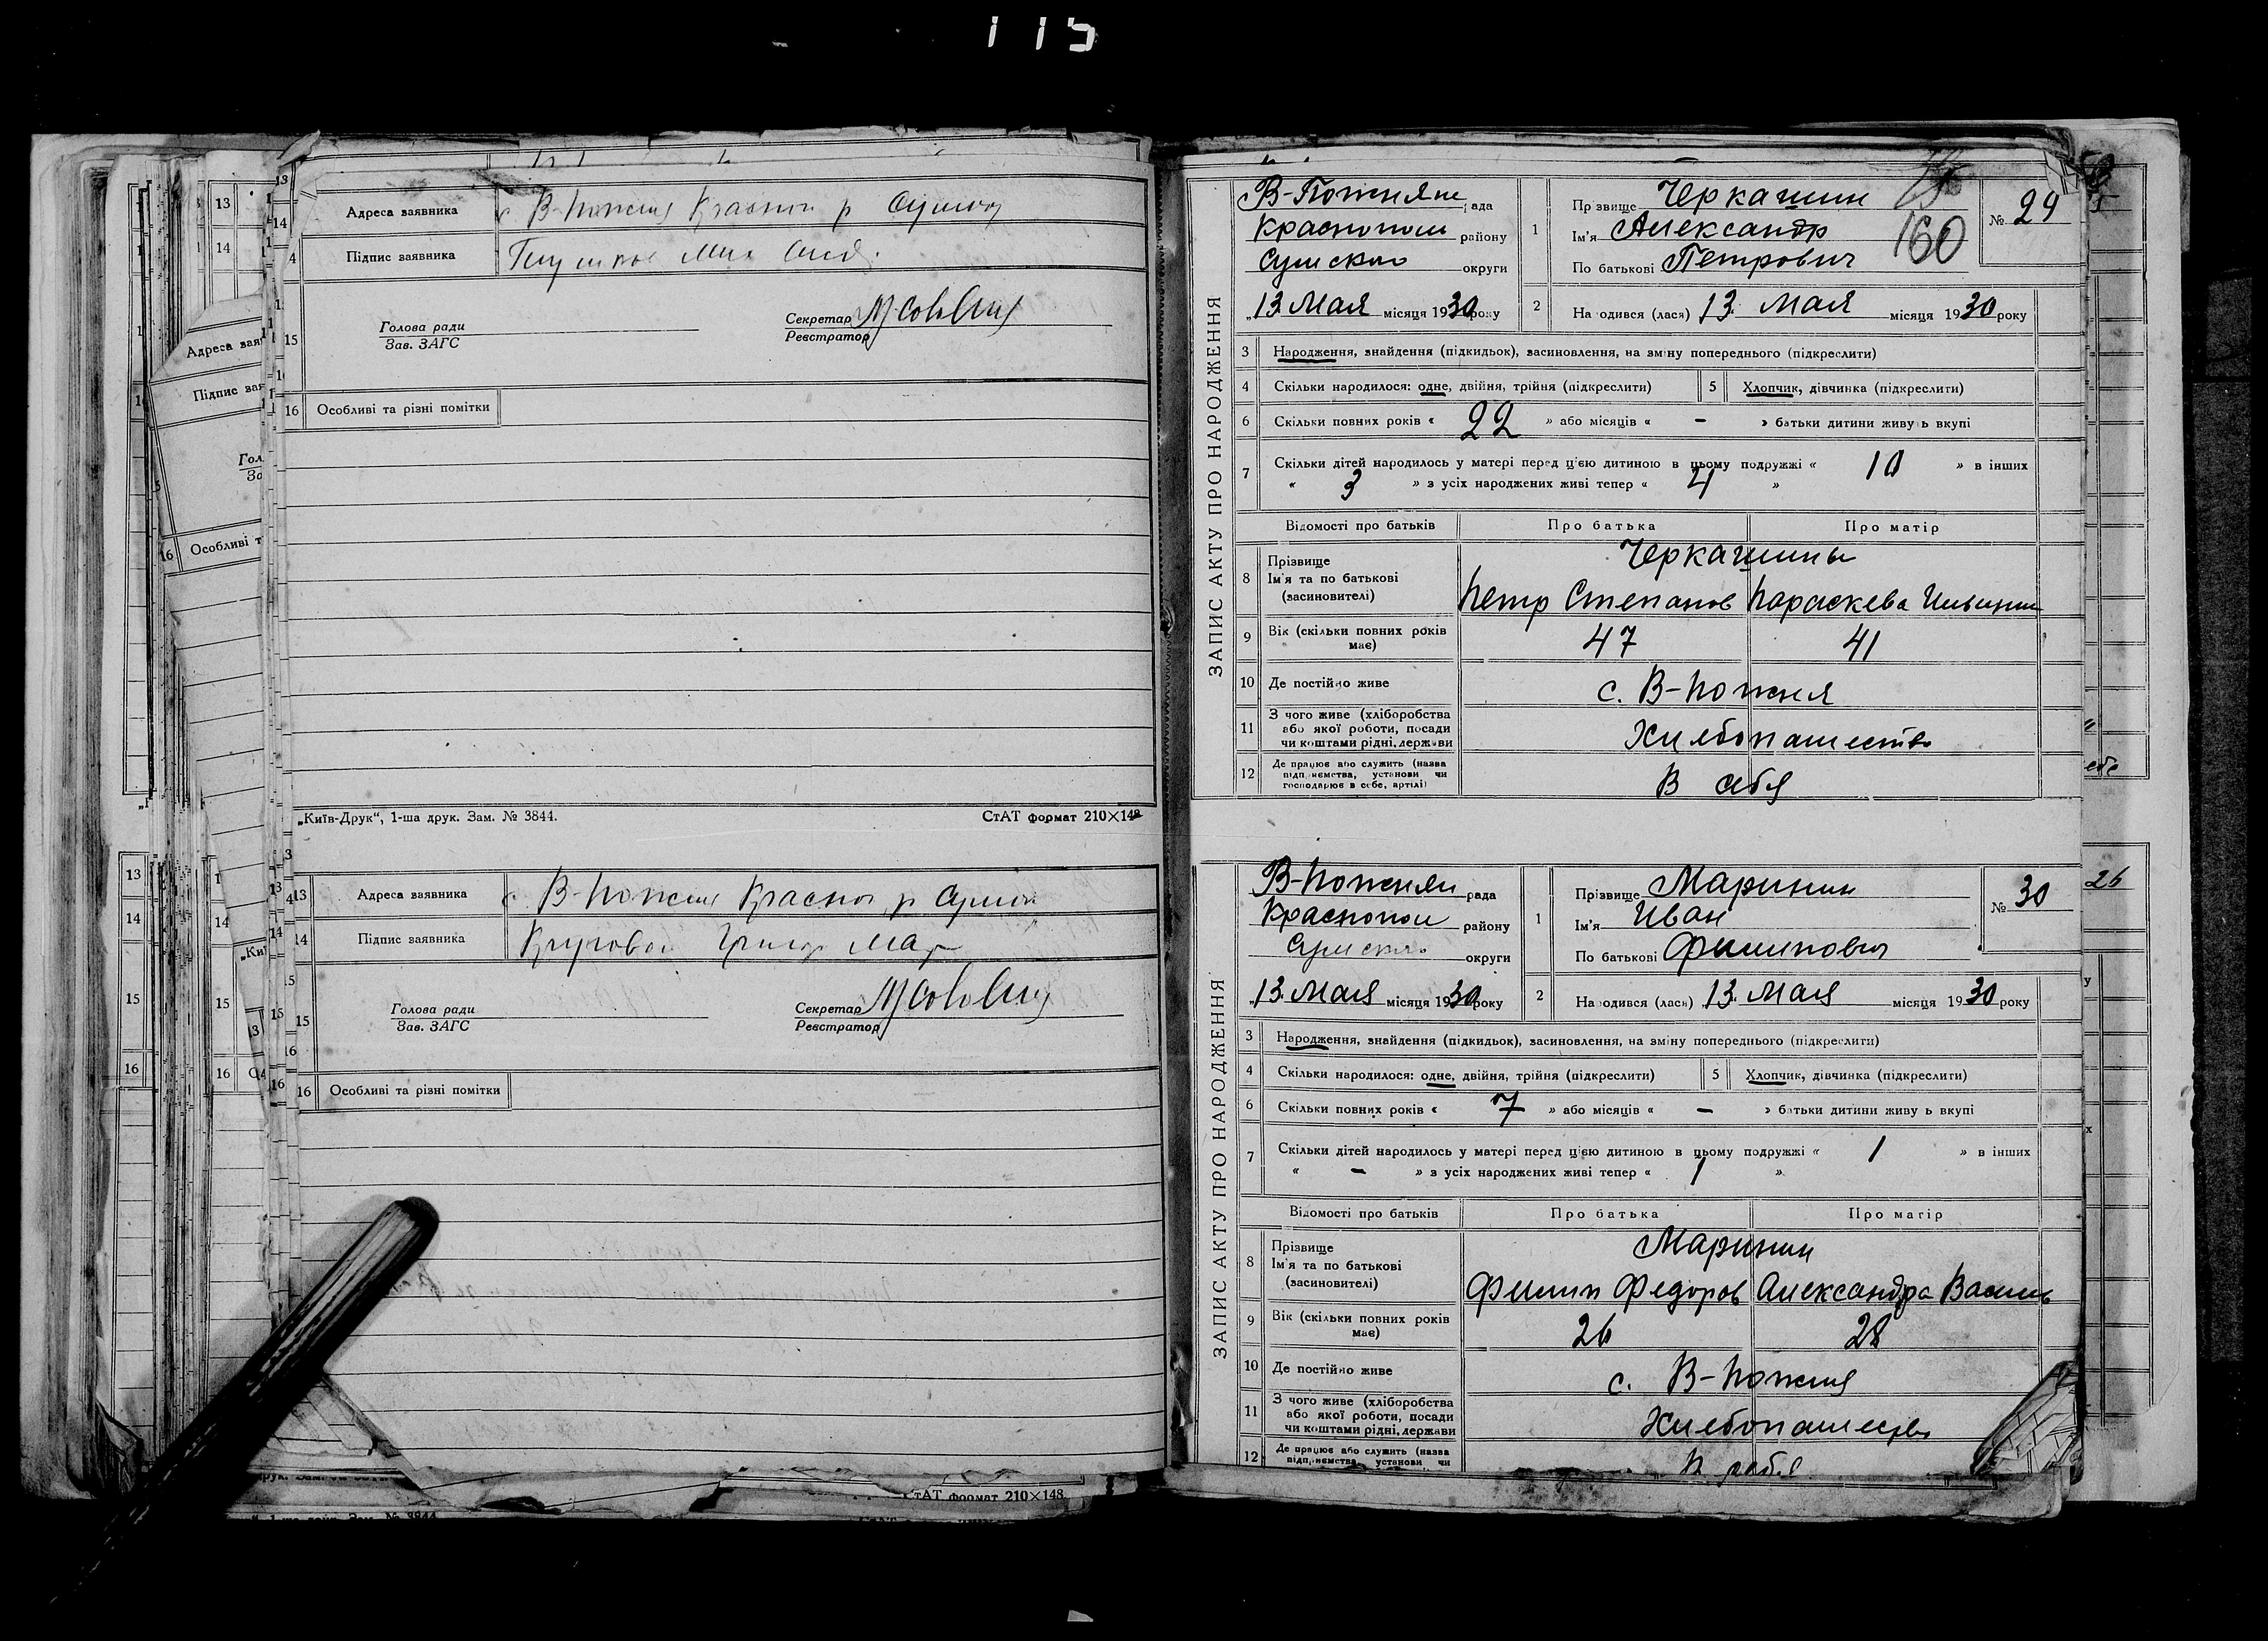 115
13 Адреса заявника с. В-Пожня Красноп р Сумск
14 Підпис заявника
15 Голова ради Секретар МСоловий
Зав. ЗАГС Реєстратор
16 Особливі та різні помітки
„Київ-Друк“, 1-ша друк. Зам. № 3844. СтАТ формат 210×148
13 Адреса заявника с. В-Пожня Красноп р Сумск
14 Підпис заявника
15 Голова ради Секретар МСоловий
Зав. ЗАГС Реєстратор
16 Особливі та різні помітки
СтАТ формат 210×148
ЗАПИС АКТУ ПРО НАРОДЖЕННЯ
В-Пожнян рада
Краснопол району
Сумской округи
„13 Мая місяця 1930 року
1 Прізвище Черкашин
Ім'я Александр
По батькові Петрович
160
№ 29
2 На одився (лася) 13 Мая місяця 1930 року
3 Народження, знайдення (підкидьок), засиновлення, на зміну попереднього (підкреслити)
4 Скільки народилося: одне, двійня, трійня (підкреслити) 5 Хлопчик, дівчинка (підкреслити)
6 Скільки повних років « 22 » або місяців « – » батьки дитини живу ь вкупі
7 Скільки дітей народилось у матері перед ц'єю дитиною в цьому подружжі « 10 » в інших
« 3 » з усіх народжених живі тепер « 4 »
Відомості про батьків Про батька Про матір
8 Прізвище Черкашины
Ім'я та по батькові
(засиновителі) Петр Степанов Параскева Ильинич
9 Вік (скільки повних років має) 47 41
10 Де постійно живе с. В-Пожня
11 З чого живе (хліборобства
або якої роботи, посади
чи коштами рідні, держави Хлебопашество
12 Де працює або служить (назва
підприємства, установи чи
господарює в себе, артілі) В себя
ЗАПИС АКТУ ПРО НАРОДЖЕННЯ
В-Пожнян рада
Краснопол району
Сумской округи
„13 Мая місяця 1930 року
1 Прізвище Маринин
Ім'я Иван
По батькові Филипович
№ 30
2 На одився (лася) 13 Мая місяця 1930 року
3 Народження, знайдення (підкидьок), засиновлення, на зміну попереднього (підкреслити)
4 Скільки народилося: одне, двійня, трійня (підкреслити) 5 Хлопчик, дівчинка (підкреслити)
6 Скільки повних років « 7 » або місяців « – » батьки дитини живу ь вкупі
7 Скільки дітей народилось у матері перед ц'єю дитиною в цьому подружжі « 1 » в інших
« – » з усіх народжених живі тепер « 1 »
Відомості про батьків Про батька Про матір
8 Прізвище Маринин
Ім'я та по батькові
(засиновителі) Филип Федоров Александра Василь
9 Вік (скільки повних років має) 26 28
10 Де постійно живе с. В-Пожня
11 З чого живе (хліборобства
або якої роботи, посади
чи коштами рідні, держави Хлебопашество
12 Де працює або служить (назва
підприємства, установи чи